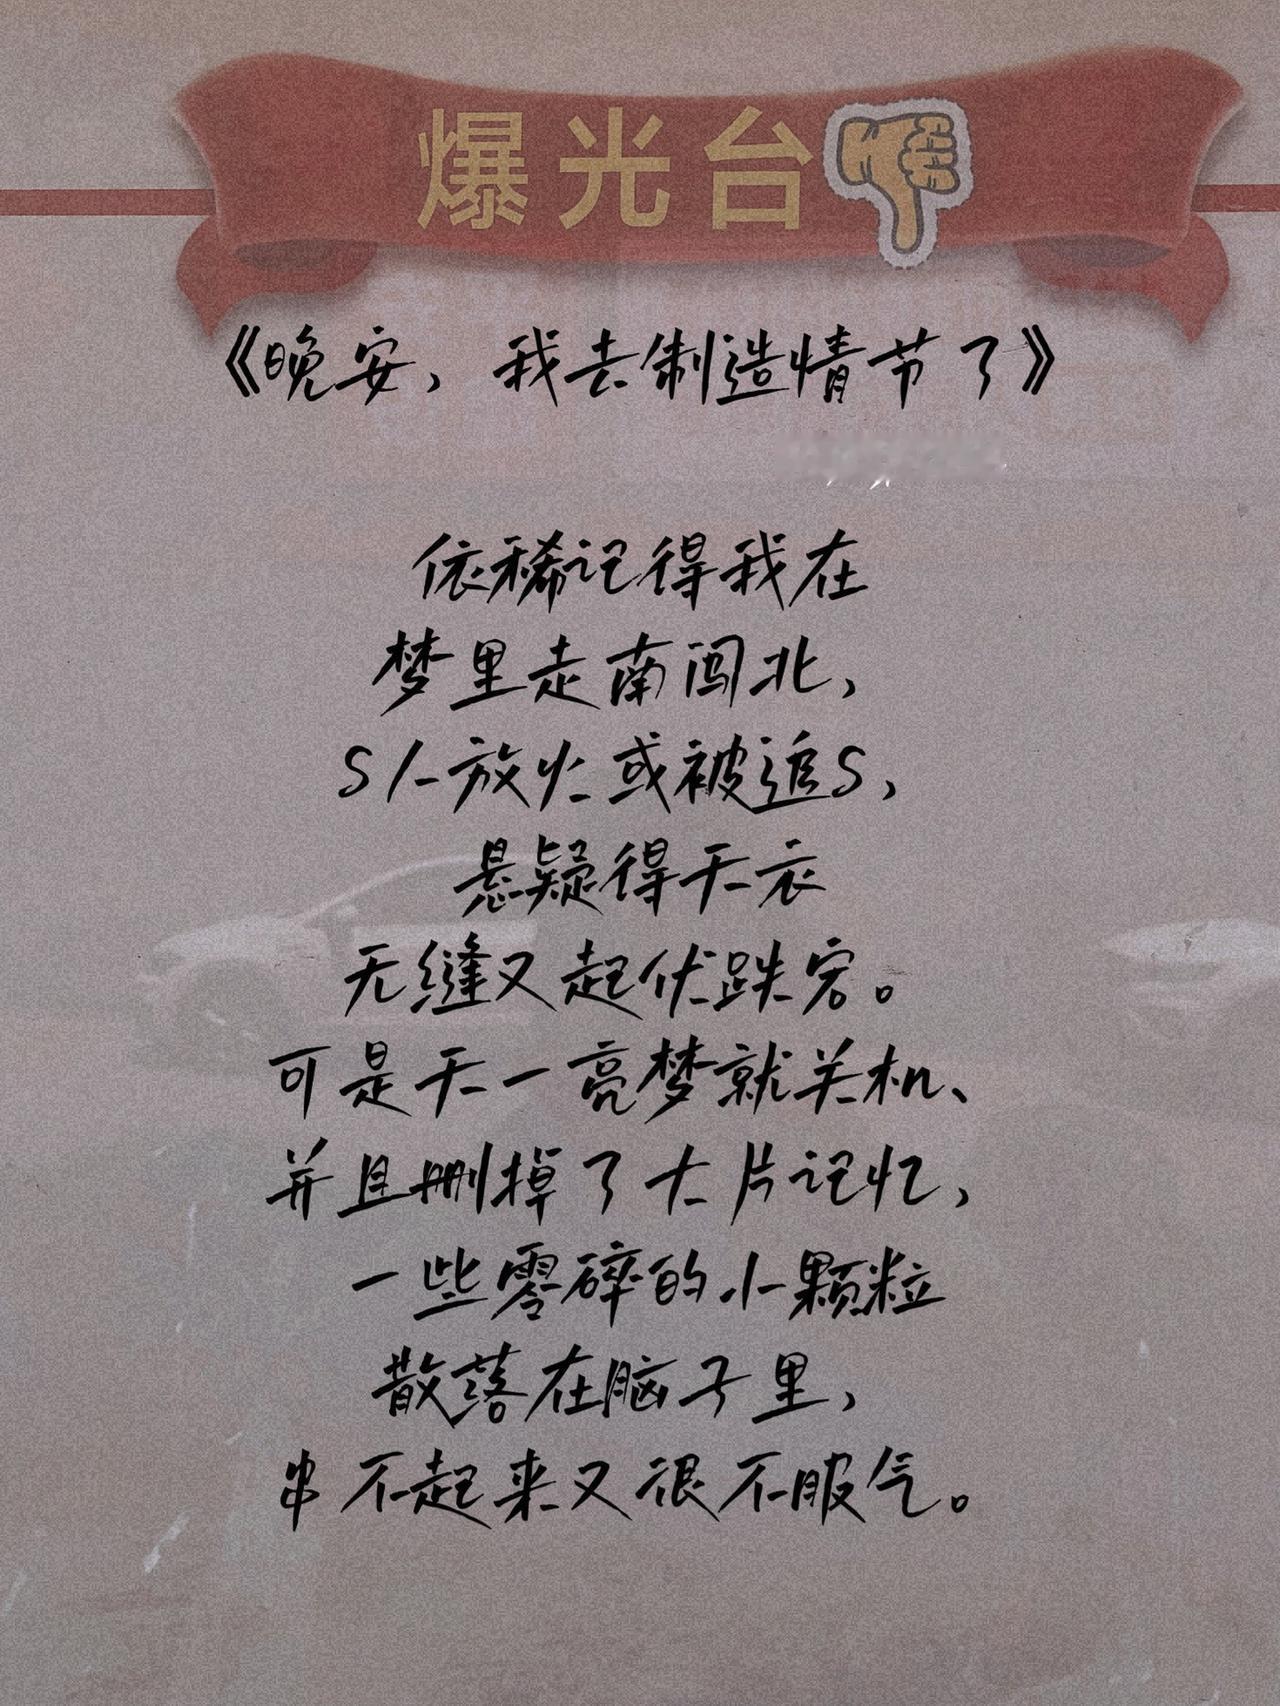 爆光台
《晚安，我去制造情节了》
依稀记得我在
梦里走南闯北，
S人放火或被追S，
悬疑得天衣
无缝又起伏跌宕。
可是天一亮梦就关机、
并且删掉了大片记忆，
一些零碎的小颗粒
散落在脑子里，
串不起来又很不服气。